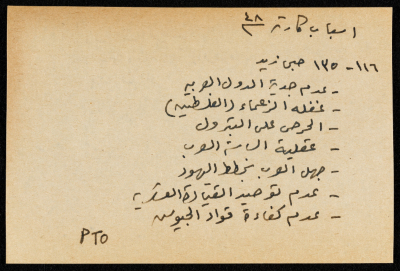 اسباب كارثة ٤٨
١١٦ - ١٣٥ صبحي زيد
- عدم جدية الدول العربيه
- غفلة الزعماء (الفلسطينيه)
- الحرص على البترول
- عقلية الساسة العرب
- جهل العرب بخطط اليهود
- عدم توحيد القيادة العسكريه
- عدم كفاءة قواد الجيوش
PTO